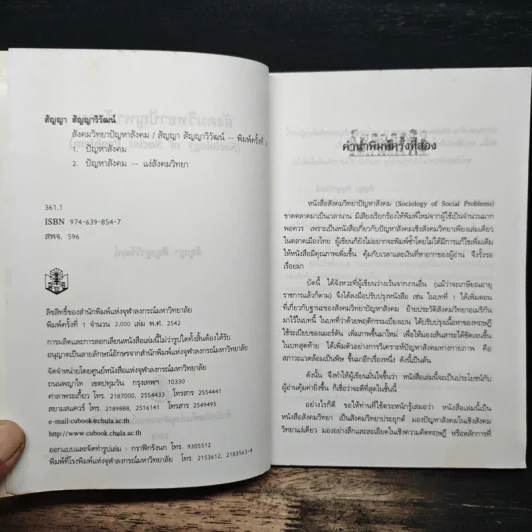 สัญญา สัญญาวิวัฒน์
สังคมวิทยาปัญหาสังคม / สัญญา สัญญาวิวัฒน์ -- พิมพ์ครั้งที่
1. ปัญหาสังคม
2. ปัญหาสังคม -- แง่สังคมวิทยา
361.1
ISBN 974-639-854-7
สพจ. 596
ลิขสิทธิ์ของสำนักพิมพ์แห่งจุฬาลงกรณ์มหาวิทยาลัย
พิมพ์ครั้งที่ 1 จำนวน 2,000 เล่ม พ.ศ. 2542
การผลิตและการลอกเลียนหนังสือเล่มนี้ไม่ว่ารูปใดทั้งสิ้นต้องได้รับ
อนุญาตเป็นลายลักษณ์อักษรจากสำนักพิมพ์แห่งจุฬาลงกรณ์มหาวิทยาลัย
จัดจำหน่ายโดยศูนย์หนังสือแห่งจุฬาลงกรณ์มหาวิทยาลัย
ถนนพญาไท เขตปทุมวัน กรุงเทพฯ 10330
ศาลาพระเกี้ยว โทร. 2187000, 2554433 โทรสาร 2554441
สยามสแควร์ โทร. 2189888, 2516141 โทรสาร 2549495
e-mail-cubook@chula.ac.th
http://www.cubook.chula.ac.th
ออกแบบและจัดทำรูปเล่ม : กราฟิกรังนก โทร. 9305512
พิมพ์ที่โรงพิมพ์แห่งจุฬาลงกรณ์มหาวิทยาลัย โทร. 2153612, 2183563-4
คำนำพิมพ์ครั้งที่สอง
หนังสือสังคมวิทยาปัญหาสังคม (Sociology of Social Problems)
ขาดตลาดมาเป็นเวลานาน มีเสียงเรียกร้องให้พิมพ์ใหม่จากผู้ใช้เป็นจำนวนมาก
พอควร เพราะเป็นหนังสือเกี่ยวกับปัญหาสังคมเชิงสังคมวิทยาเพียงเล่มเดียว
ในตลาดเมืองไทย ผู้เขียนก็ยังไม่อยากจะพิมพ์ซ้ำโดยไม่ได้มีการแก้ไขเพิ่มเติม
ให้หนังสือมีคุณภาพเพิ่มขึ้น คุ้มกับเวลาและเงินที่หายากของผู้อ่าน จึงรั้งรอ
เรื่อยมา
บัดนี้ ได้จังหวะที่ผู้เขียนว่างเว้นจากงานอื่น (แม้ว่าจะเกษียณอายุ
ราชการแล้วก็ตาม) จึงได้ลงมือปรับปรุงหนังสือ เช่น ในบทที่ 1 ได้เพิ่มตอน
ที่เกี่ยวกับฐานะของสังคมวิทยาปัญหาสังคม ย้ายประวัติสังคมวิทยาอเมริกัน
มาไว้ในบทนี้ ในบทที่ว่าด้วยพฤติกรรมเบี่ยงเบน ได้ปรับปรุงเนื้อหาของทฤษฎี
ใช้ระเบียบของเมอร์ตัน เพิ่มภาพขึ้นมาใหม่ เพื่อให้มองเห็นสาระได้ชัดเจนขึ้น
ในบทสุดท้าย ได้เพิ่มตัวอย่างการวิเคราะห์ปัญหาสังคมทางกายภาพ คือ
สภาวะแวดล้อมเป็นพิษ ขึ้นมาอีกเรื่องหนึ่ง ดังนี้เป็นต้น
ดังนั้น จึงทำให้ผู้เขียนมั่นใจขึ้นว่า หนังสือเล่มนี้จะเป็นประโยชน์กับ
ผู้อ่านคุ้มค่ายิ่งขึ้น ก็เชื่อว่าจะดีที่สุดในชั้นนี้
อย่างไรก็ดี ขอให้ท่านที่ใช้ตระหนักรู้เสมอว่า หนังสือเล่มนี้เป็น
หนังสือสังคมวิทยา เป็นสังคมวิทยาประยุกต์ มองปัญหาสังคมในเชิงสังคม
วิทยาแง่เดียว มองอย่างลึกและละเอียดในเชิงความคิดทฤษฎี หรือหลักการที่